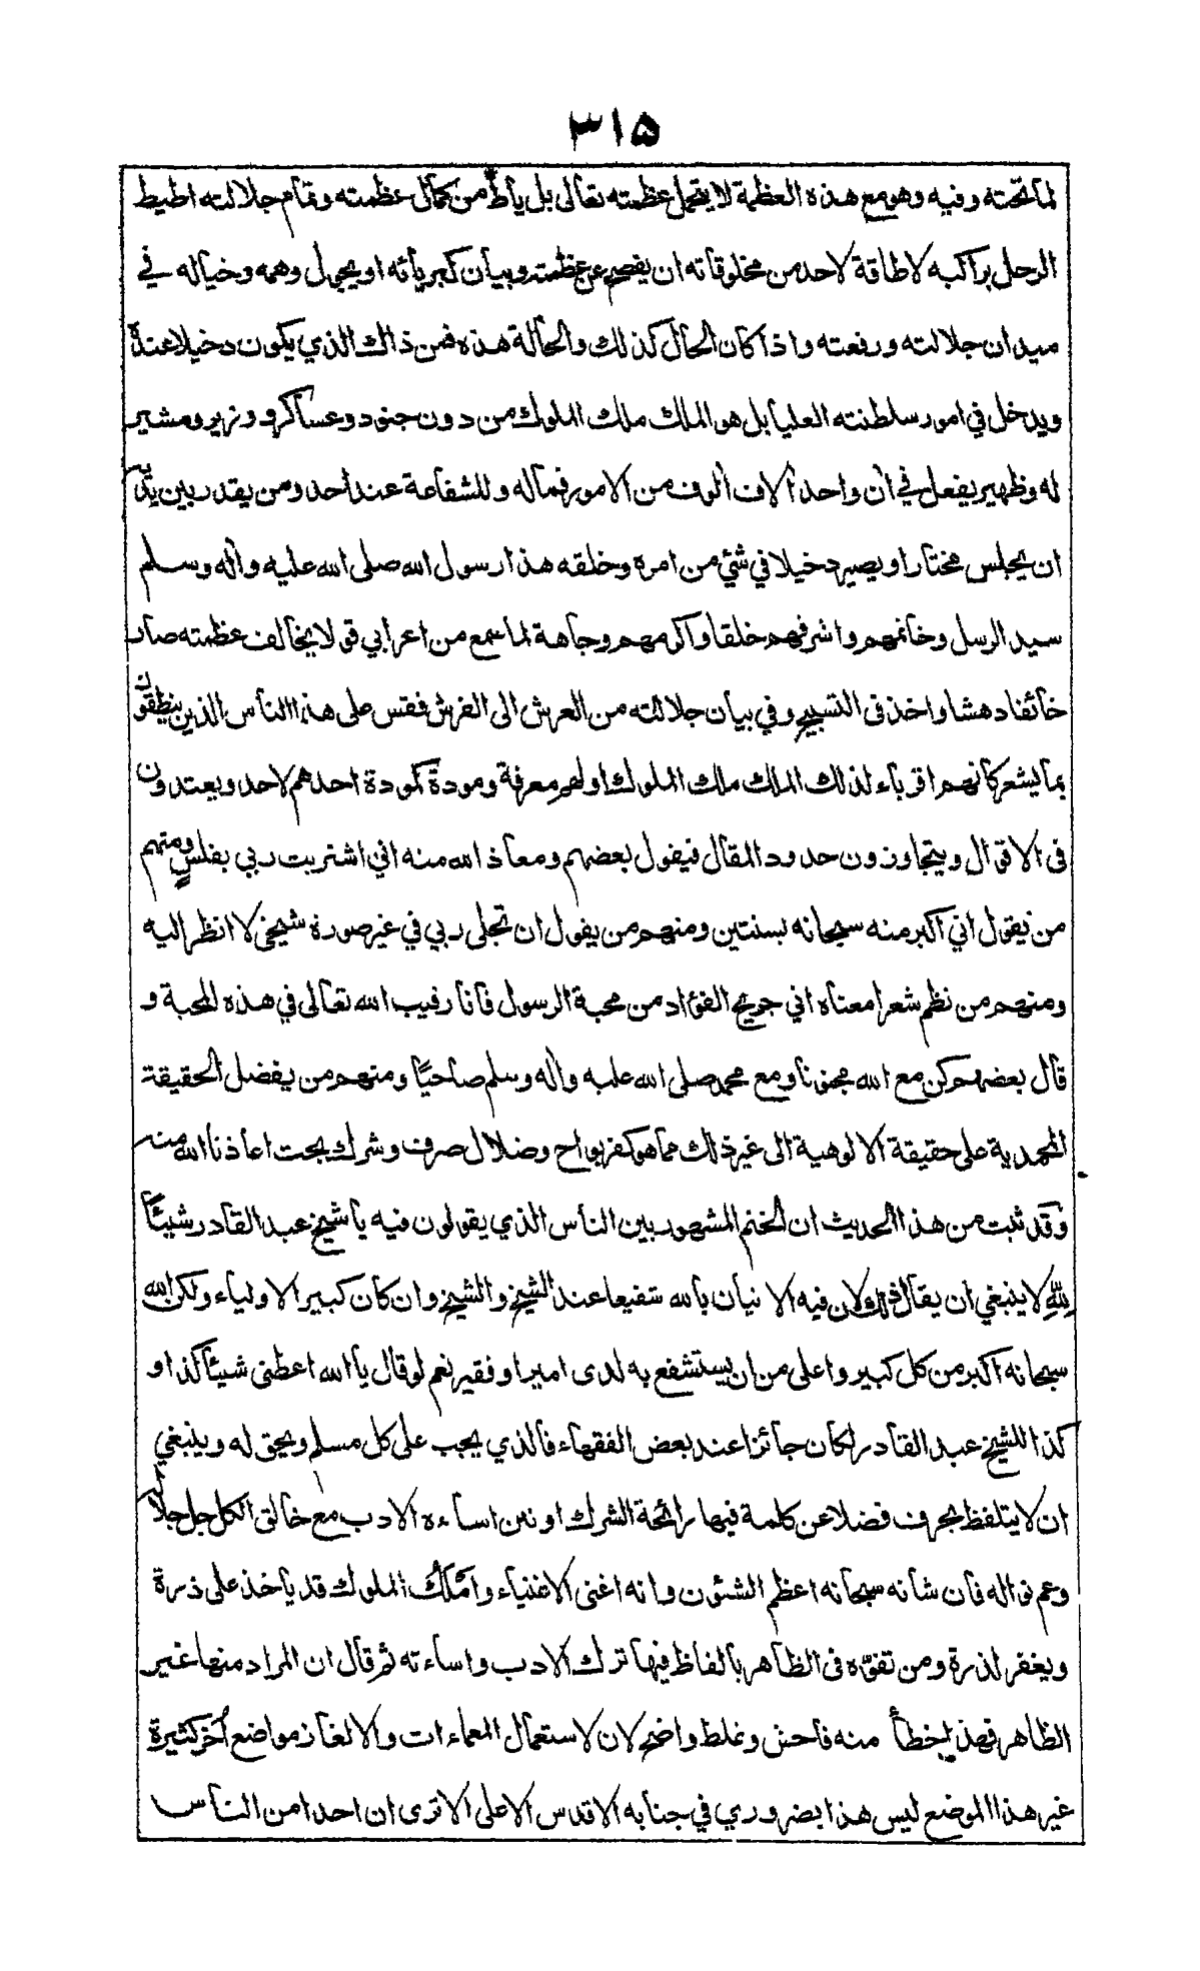 ٣١٥
لما تحته وفيه وهو مع هذه العظمة لا يتحمل عظمته تعالى بل يأط من كمال عظمته وتمام جلالته اطيط
الرحل براكبه لا طاقة لاحد من مخلوقاته ان يفصح عن عظمته وبيان كبريائه او يجول وهمه وخياله في
ميدان جلالته ورفعته واذا كان الحال كذلك والحالة هذه فمن ذاك الذي يكون دخيلا عنده
ويدخل في امور سلطنته العليا بل هو الملك ملك الملوك من دون جنود وعساكر و وزير ومشير
له وظهير يفعل في آن واحد آلاف ألوف من الامور فماله وللشفاعة عند احد ومن يقدر بين يديه
ان يجلس مختارا ويصير دخيلا في شئ من امره وخلقه هذا رسول الله صلى الله عليه وآله وسلم
سيد الرسل وخاتمهم واشرفهم خلقا واكرمهم وجاهة لما سمع من اعرابي قولا يخالف عظمته صار
خائفا دهشا واخذ في التسبيح وفي بيان جلالته من العرش الى الفرش فقس على هذا الناس الذين ينطقون
بما يشعر كأنهم اقرباء لذلك الملك ملك الملوك اولهم معرفة ومودة كمودة احدهم لاحد ويعتدون
في الاقوال ويتجاوزون حدود المقال فيقول بعضهم ومعاذ الله منه اني اشتريت ربي بفلس ومنهم
من يقول اني اكبر منه سبحانه بسنتين ومنهم من يقول ان تجلى ربي في غير صورة شيخي لا انظر اليه
ومنهم من نظم شعرا معناه اني جريح الفؤاد من محبة الرسول فأنا رقيب الله تعالى في هذه المحبة و
قال بعضهم كن مع الله مجنونا ومع محمد صلى الله عليه وآله وسلم صاحيًا ومنهم من يفضل الحقيقة
المحمدية على حقيقة الالوهية الى غير ذلك مما هو كفر بواح وضلال صرف وشرك بحت اعاذنا الله منه
وقد ثبت من هذا الحديث ان الختم المشهور بين الناس الذي يقولون فيه يا شيخ عبد القادر شيئًا
لله لا ينبغي ان يقال ذلك لان فيه الاتيان بالله شفيعا عند الشيخ والشيخ وان كان كبير الاولياء ولكن الله
سبحانه اكبر من كل كبير واعلى من ان يستشفع به لدى امير او فقير نعم لو قال يا الله اعطني شيئا كذا او
كذا للشيخ عبد القادر لكان جائزا عند بعض الفقهاء فالذي يجب على كل مسلم ويحق له وينبغي
ان لا يتلفظ بحرف فضلا عن كلمة فيها رائحة الشرك او نتن اساءه الادب مع خالق الكل جل جلاله
وعم نواله فان شانه سبحانه اعظم الشئون وانه اغنى الاغنياء واملك الملوك قد ياخذ على ذرة
ويغفر لذرة ومن تفوّه في الظاهر بالفاظ فيها ترك الادب واساءته ثم قال ان المراد منها غير
الظاهر فهذا خطأ منه فاحش وغلط واضح لان لاستعمال المعماءات والالغاز مواضع أخر كثيرة
غير هذا الموضع ليس هذا بضروري في جنابه الاقدس الاعلى الا ترى ان احدا من الناس